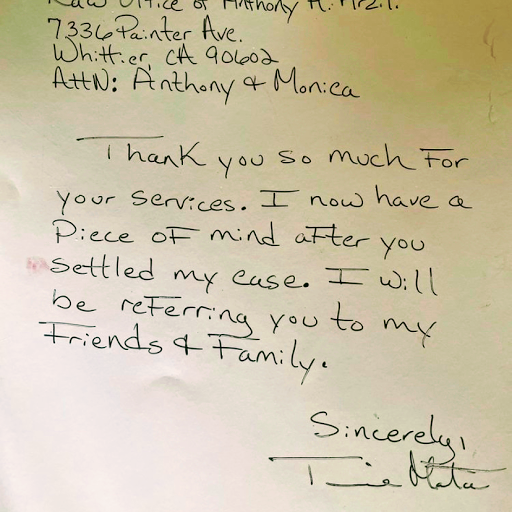 Law Office of Anthony
7336 Painter Ave.
Whittier, CA 90602
AttN: Anthony & Monica
Thank you so much For
your services. I now have a
Piece oF mind aFter you
settled my case. I will
be reFerring you to my
Friends & Family.
Sincerely,